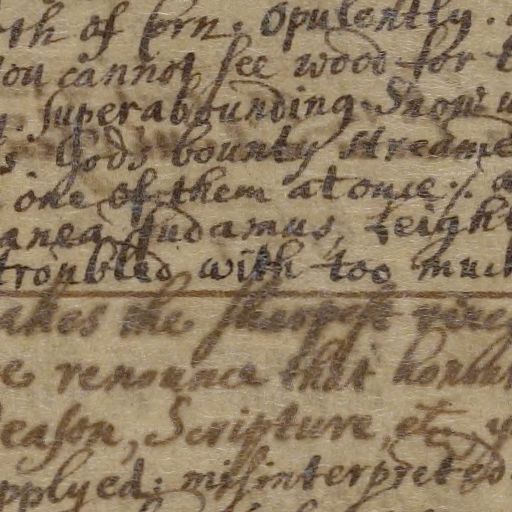 th of krn. Opulently.
ou cannot see wood for t
superabounding. Snow w
s God's bounty streame
one of them at once. a
anea Judamus, Leigh
troubled with too much
akes the sharpest vine
e renounce that honou
eason, Scripture, etc. y
pplyed; misinterpreted